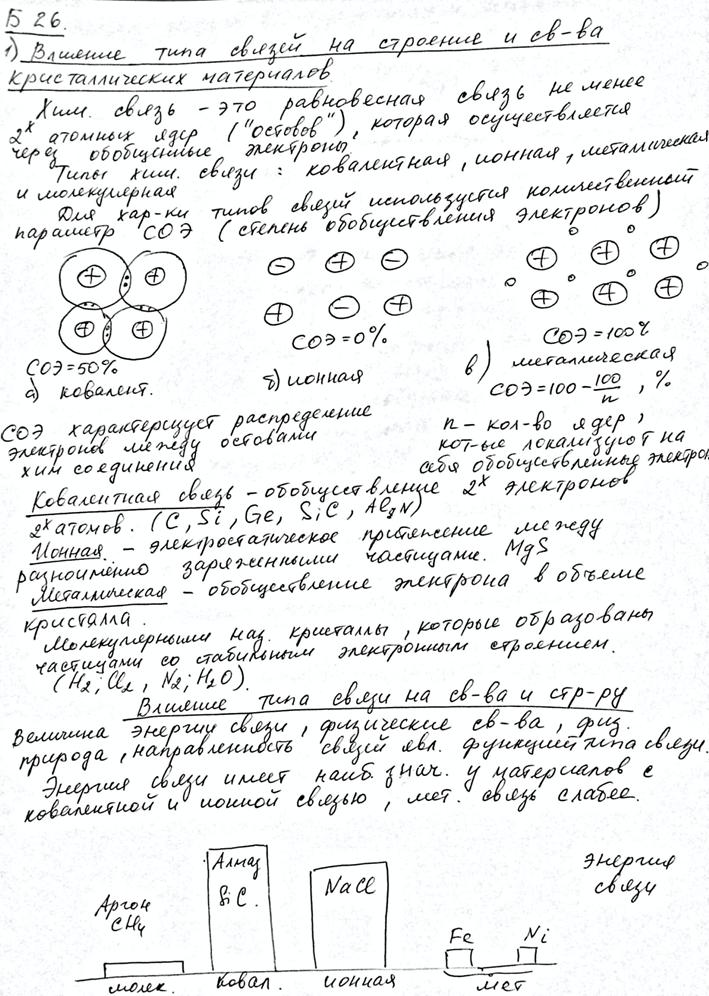 Б 26.
1) Влияние типа связей на строение и св-ва
кристаллических материалов.
Хим. связь - это равновесная связь не менее
2х атомных ядер ("остовов"), которая осуществляется
через обобщенные электроны.
Типы хим. связи: ковалентная, ионная, металлическая
и молекулярная
Для хар-ки типов связей используется количественный
параметр СОЭ (степень обобществления электронов)
СОЭ=50%
а) ковалент.
СОЭ=0%
б) ионная
СОЭ=100%
в) металлическая
СОЭ=100-100/n, %
СОЭ характеризует распределение
электронов между остовами
хим соединения
n - кол-во ядер,
кот-ые локализуют на
себя обобществленные электрон
Ковалентная связь - обобществление 2х электронов
2х атомов. (C, Si, Ge, SiC, Al3N)
Ионная. - электростатическое притяжение между
разноименно заряженными частицами. MgS
Металлическая - обобществление электрона в объеме
кристалла.
Молекулярными наз. кристаллы, которые образованы
частицами со стабильным электронным строением.
(H2; Cl2, N2; H2O).
Влияние типа связи на св-ва и стр-ру
Величина энергии связи, физические св-ва, физ.
природа, направленность связей явл. функцией типа связи.
Энергия связи имеет наиб. знач. у материалов с
ковалентной и ионной связью, мет. связь слабее.
Энергия
связи
Аргон
CH4
Алмаз
SiC.
NaCl
Fe
Ni
молек.
ковал.
ионная
мет